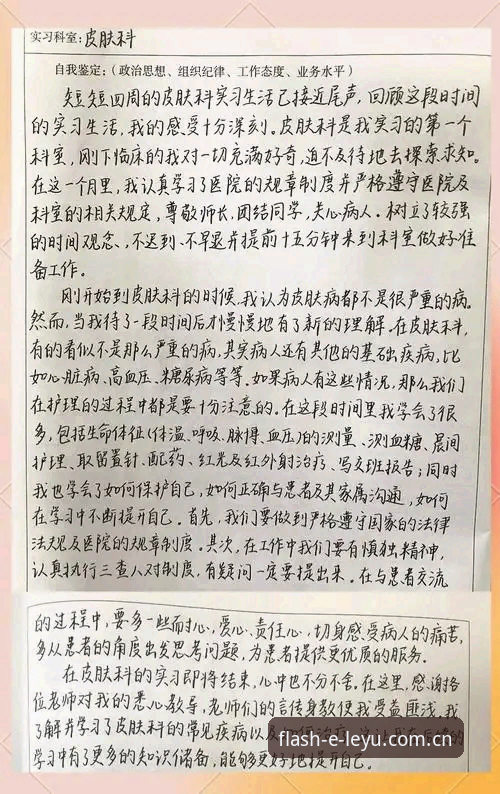 实习科室:皮肤科
自我鉴定:(政治思想、组织纪律、工作态度、业务水平)
短短四周的皮肤科实习生活已接近尾声,回顾这段时间
的实习生活,我的感受十分深刻。皮肤科是我实习的第一个
科室,刚下临床的我对一切充满好奇,迫不及待地去探索求知。
在这一个月里,我认真学习了医院的规章制度并严格遵守医院及
科室的相关规定,尊敬师长,团结同学,关心病人。树立了较强
的时间观念、不迟到、不早退并提前十五分钟来到科室做好准
备工作。
刚开始到皮肤科的时候,我认为皮肤病都不是很严重的病。
然而,当我待了一段时间后才慢慢地有了新的理解。在皮肤科,
有的看似不是那么严重的病,其实病人还有其他的基础疾病,比
如心脏病、高血压、糖尿病等等。如果病人有这些情况,那么我们
在护理的过程中都是要十分注意的。在这段时间里我学会了很
多,包括生命体征(体温、呼吸、脉搏、血压)的测量、测血糖、晨间
护理、取留置针、配药、红光及红外射治疗、写交班报告;同时
我也学会了如何保护自己,如何正确与患者及其家属沟通,如何
在学习中不断提升自己。首先,我们要做到严格遵守国家的法律
法规及医院的规章制度。其次,在工作中我们要有慎独精神,
认真执行三查八对制度,有疑问一定要提出来。在与患者交流
的过程中,要多一些耐心、爱心、责任心,切身感受病人的痛苦,
多从患者的角度出发思考问题,为患者提供更优质的服务。
在皮肤科的实习即将结束,心中也不分不舍。在这里,感谢各
位老师对我的悉心教导,老师们的言传身教使我受益匪浅,我
了解并学习了皮肤科的常见疾病以及
学习中有了更多的知识储备,能够更好地提升自己。
flash-e-leyu.com.cn